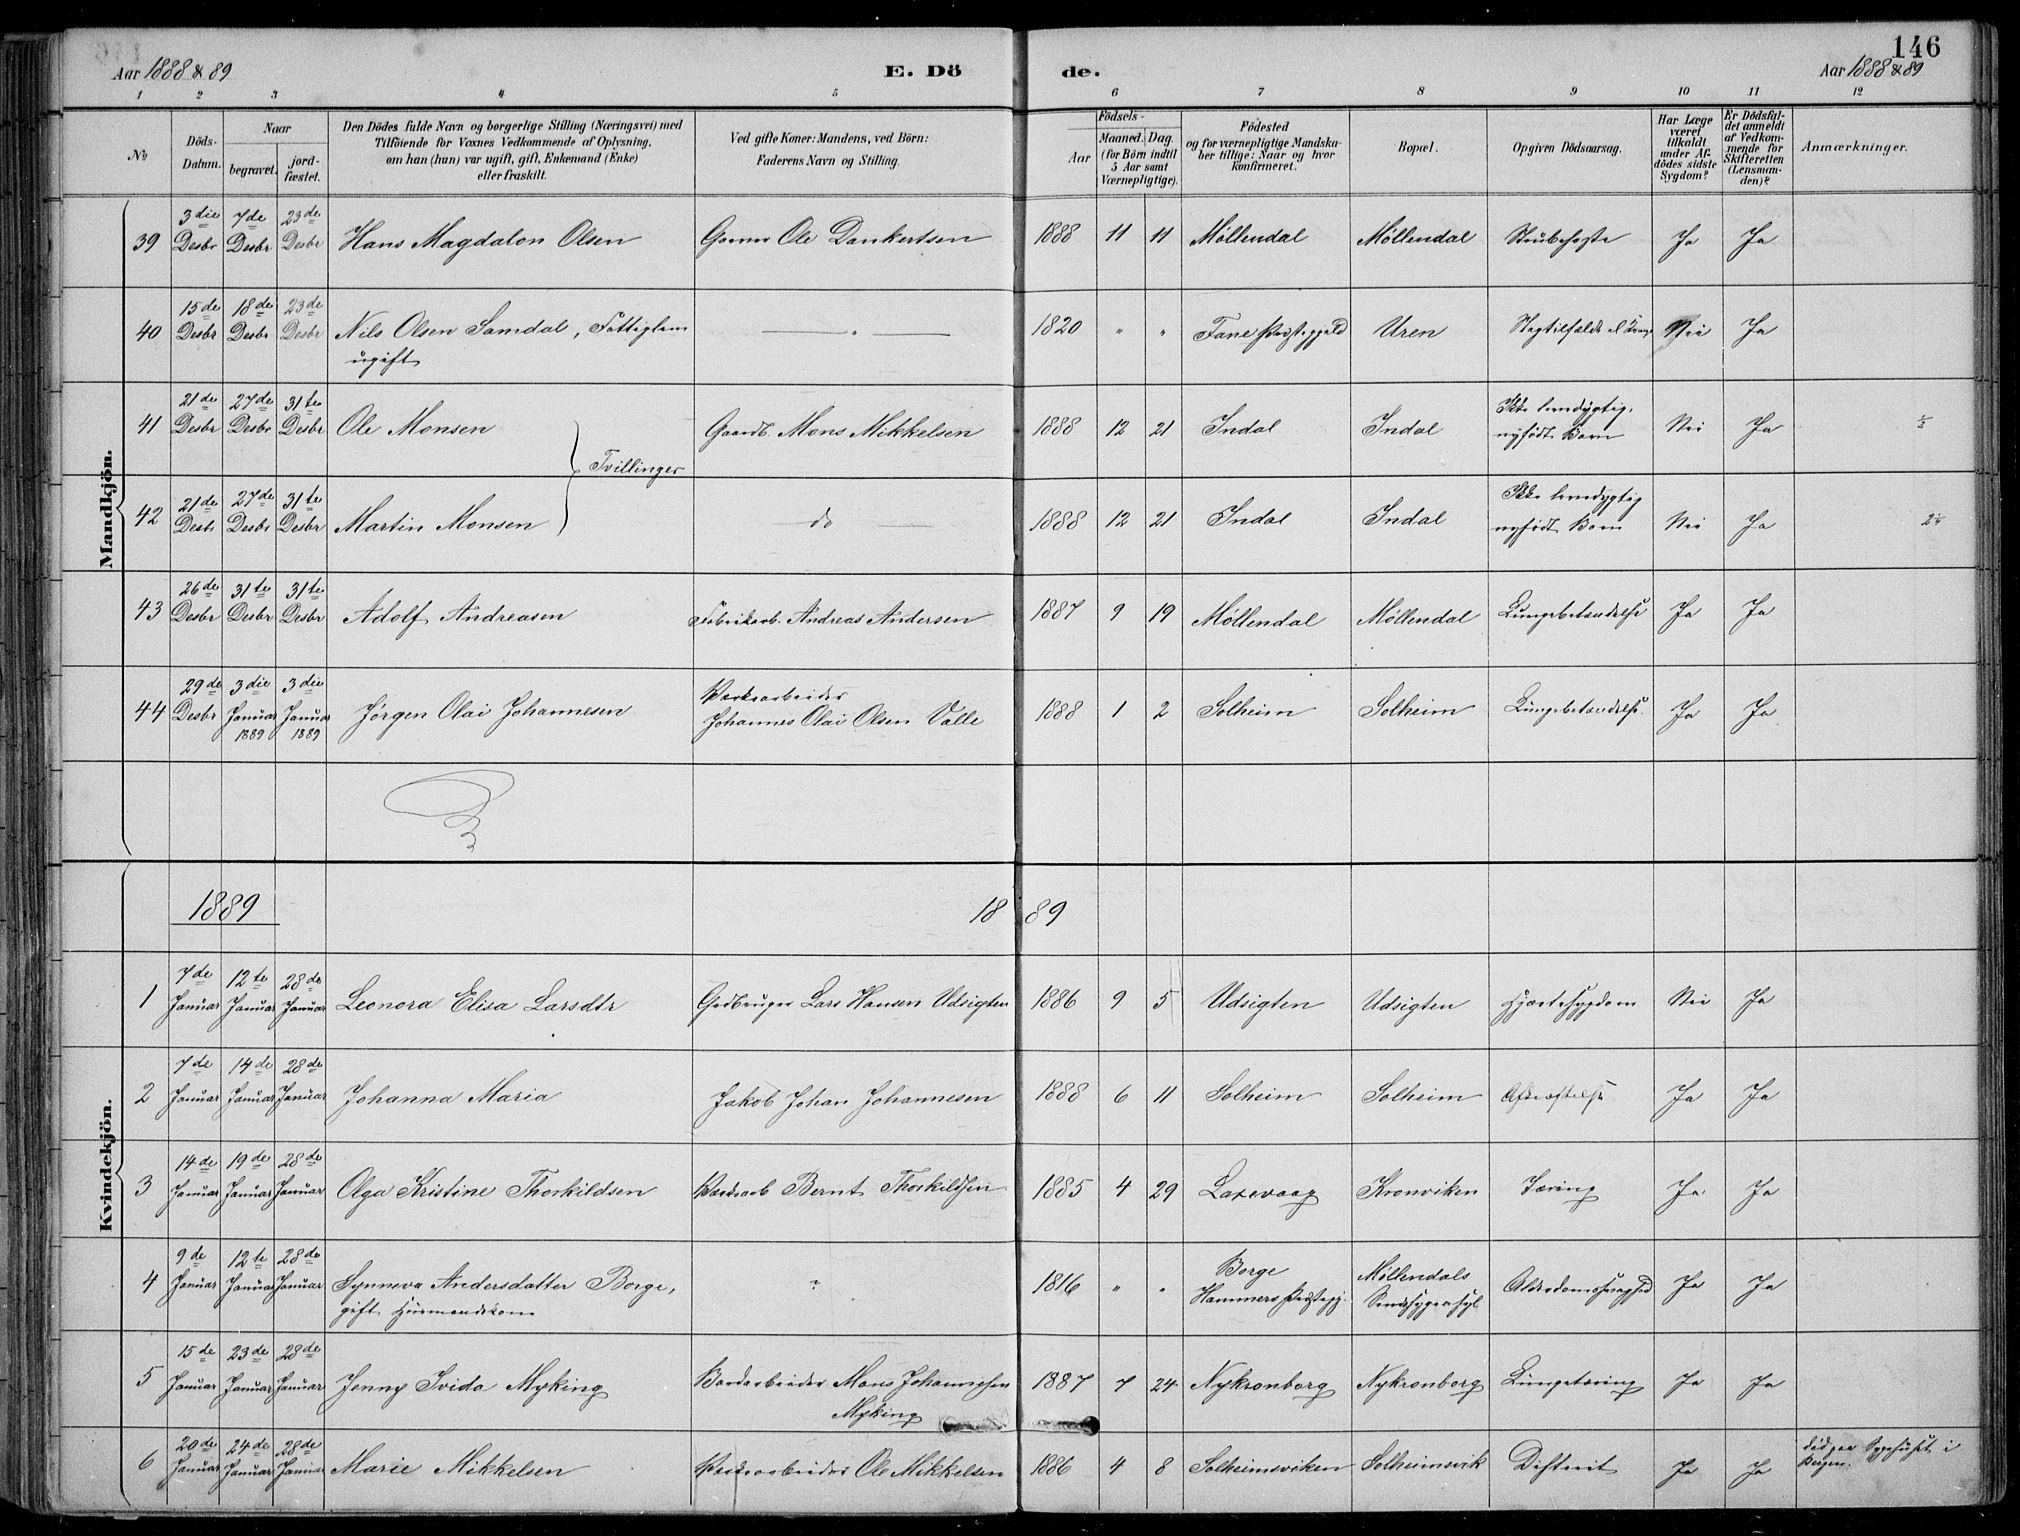 146
Aar 1888 & 89
E. Dö de.
Aar 1888 & 89
1 2 3 4 5 6 7 8 9 10 11 12
No
Döds-Datum.
Naar
begravet.
jordfæstet.
Den Dödes fulde Navn og borgerlige Stilling (Næringsvei) med
Tilföiende for Voxnes Vedkommende af Oplysning,
om han (hun) var ugift, gift, Enkemand (Enke)
eller fraskilt.
Ved gifte Koner: Mandens, ved Börn:
Faderens Navn og Stilling.
Födsels-
Aar
Maaned. Dag.
(for Börn indtil
5 Aar samt
Værnepligtige).
Födested
og for værnepligtige Mandska-
ber tillige: Naar og hvor
konfirmeret.
Bopæl.
Opgiven Dödsaarsag.
Har Læge
været
tilkaldt
under Af-
dödes sidste
Sygdom?
Er Dödsfal-
det anmeldt
af Vedkom-
mende for
Skifteretten
(Lensman-
den)?
Anmærkninger.
Mandkjön.
39 3die Desbr 7de Desbr 23de Desbr Hans Magdalon Olsen Garver Ole Dankertsen 1888 11 11 Møllendal Møllendal Strubehoste Ja Ja
40 15de Desbr 18de Desbr 23de Desbr Nils Olsen Samdal, Fattiglem — " — 1820 " " Fane Præstegjeld Uren Nei Ja
ugift
41 21de Desbr 27de Desbr 31te Desbr Ole Monsen Gaardb. Mons Mikkelsen 1888 12 21 Indal Indal Ikke levedygtig, nyfødt Barn Nei Ja
Tvillinger
42 21de Desbr 27de Desbr 31te Desbr Martin Monsen do 1888 12 21 Indal Indal Ikke levedygtig nyfødt Barn Nei Ja
43 26de Desbr 31te Desbr 31te Desbr Adolf Andreasen Fabrikarb. Andreas Andersen 1887 9 19 Møllendal Møllendal Lungebetændelse Ja Ja
44 29de Desbr 3die Januar 1889 3die Januar 1889 Jørgen Olai Johannesen Værksarbeider Johannes Olai Olsen Valle 1888 1 2 Solheim Solheim Lungebetændelse. Ja Ja
Kvindekjön.
1889 1889
1 7de Januar 12te Januar 28de Januar Leonora Elisa Larsdtr Grdbruger Lars Hansen Udsigten 1886 9 5 Udsigten Udsigten Hjertesygdom Nei Ja
2 7de Januar 14de Januar 28de Januar Johanna Maria Jakob Johan Johannesen 1888 6 11 Solheim Solheim Afkræftelse Ja Ja
3 14de Januar 19de Januar 28de Januar Olga Kristine Thorkildsen Værksarb Bernt Thorkildsen 1885 4 29 Laxevaag Kronviken Tæring Ja Ja
4 9de Januar 12te Januar 28de Januar Synneva Andersdatter Borge, " 1816 " " Borge Hammers Præstegj. Møllendals Sindssygeasyl Alderdomssvaghed Ja Ja
gift Husmandskone
5 15de Januar 23de Januar 28de Januar Jenny Svida Myking Mons Johannesen Myking 1887 7 24 Nykronborg Nykronborg Lungetæring Ja Ja
6 20de Januar 24de Januar 28de Januar Marie Mikkelsen Værksarbeider Ole Mikkelsen 1886 4 8 Solheimsviken Solheimsvik Difterit Ja Ja død paa Sygehuset i Bergen.